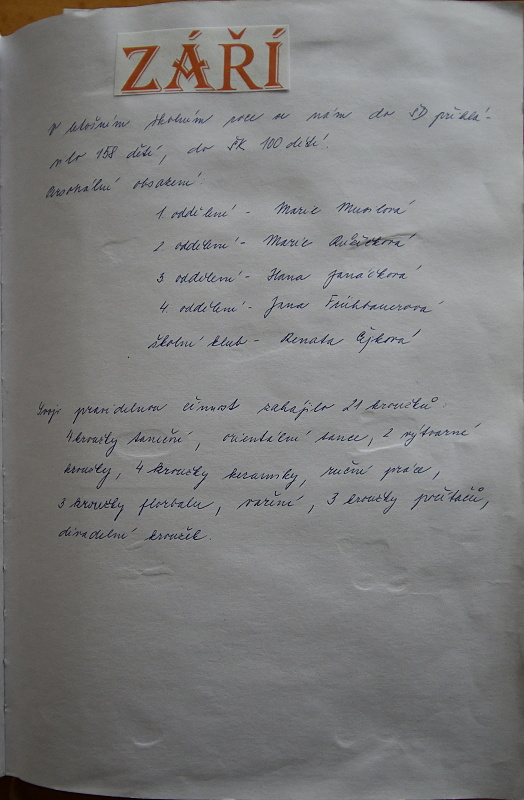 ZÁŘÍ
V letošním školním roce se nám do ŠD přihlá-
silo 158 dětí, do ŠK 100 dětí.
Personální obsazení:
1. oddělení - Marie Musilová
2. oddělení - Marie Růžičková
3 oddělení - Hana Janáčková
4. oddělení - Jana Frühbauerová
školní klub - Renata Čejková
Svoji pravidelnou činnost zahájilo 21 kroužků:
4 kroužky taneční, orientální tance, 2 výtvarné
kroužky, 4 kroužky keramiky, ruční práce,
3 kroužky florbalu, vaření, 3 kroužky počítačů,
divadelní kroužek.